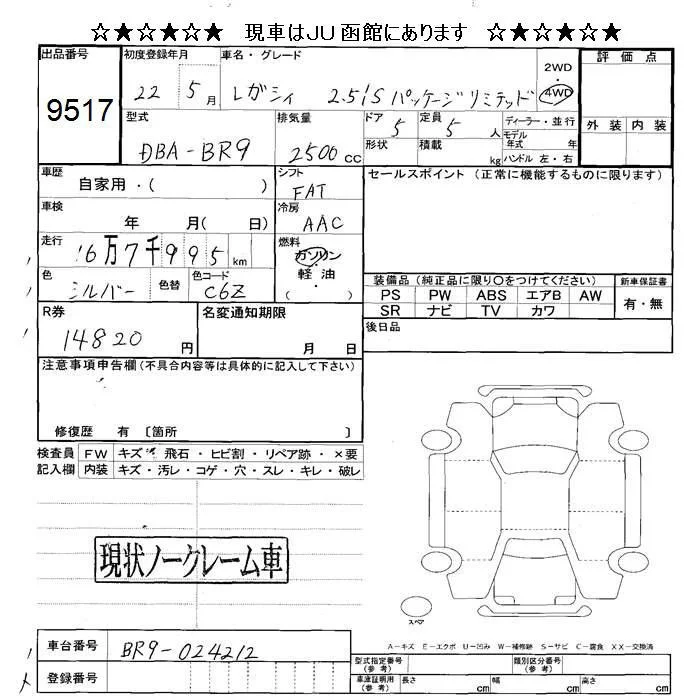 ☆★☆★☆★ 現車はJU函館にあります ☆★☆★☆★
出品番号 初度登録年月 車名・グレード 2WD・4WD 評価点
9517 22 5月 レガシィ 2.5i S パッケージリミテッド
外装 内装
型式 排気量 ドア 定員 ディーラー・並行
DBA-BR9 2500cc 5 5人 モデル年式 年
形状 積載 kg ハンドル 左・右
車歴 自家用・( ) シフト FAT セールスポイント (正常に機能するものに限ります)
車検 年 月( 日) 冷房 AAC
走行 16万7千995km 燃料 ガソリン・軽油・( )
色 シルバー 色替 色コード C6Z
装備品 (純正品に限り○をつけてください) 新車保証書
PS PW ABS エアB AW 有・無
SR ナビ TV カワ
R券 14820円 名変通知期限 月 日
後日品
注意事項申告欄(不具合内容等は具体的に記入して下さい)
修復歴 有 〔箇所 〕
検査員 FW キズ・飛石・ヒビ割・リペア跡・×要
記入欄 内装 キズ・汚レ・コゲ・穴・スレ・キレ・破レ
現状ノークレーム車
スペア
A-キズ E-エクボ U-凹み W-補修跡 S-サビ C-腐食 XX-交換済
車台番号 BR9-024212
登録番号
型式指定番号(参考) 類別区分番号(参考)
車庫証明用(参考) 長さ cm 幅 cm 高さ cm